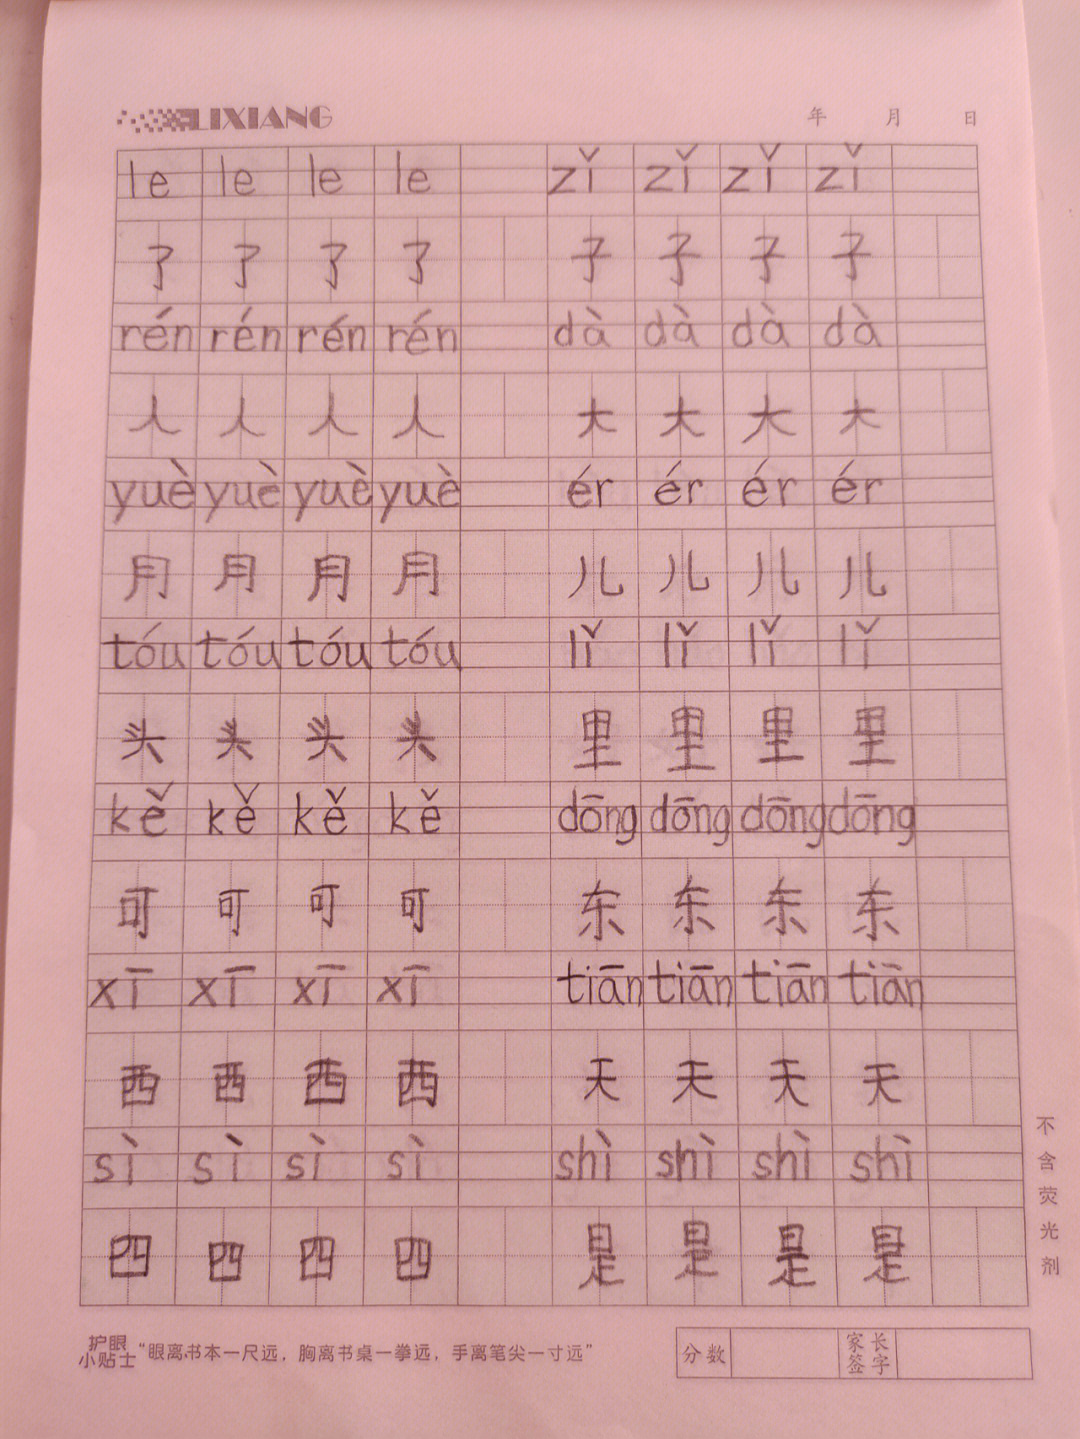 LIXIANG 年 月 日
le le le le zǐ zǐ zǐ zǐ
了 了 了 了 子 子 子 子
rén rén rén rén dà dà dà dà
人 人 人 人 大 大 大 大
yuè yuè yuè yuè ér ér ér ér
月 月 月 月 儿 儿 儿 儿
tóu tóu tóu tóu lǐ lǐ lǐ lǐ
头 头 头 头 里 里 里 里
kě kě kě kě dōng dōng dōng dōng
可 可 可 可 东 东 东 东
xī xī xī xī tiān tiān tiān tiān
西 西 西 西 天 天 天 天
sì sì sì sì shì shì shì shì
四 四 四 四 是 是 是 是
不含荧光剂
护眼小贴士 “眼离书本一尺远，胸离书桌一拳远，手离笔尖一寸远” 分数 家长签字